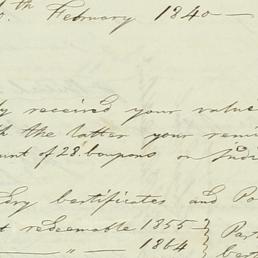 th February 1840 —
received your value
the latter your remi
unt of 28. Coupons on Indi
dry Certificates and Po
t redeemable 1855 —
— " — 1864
Part